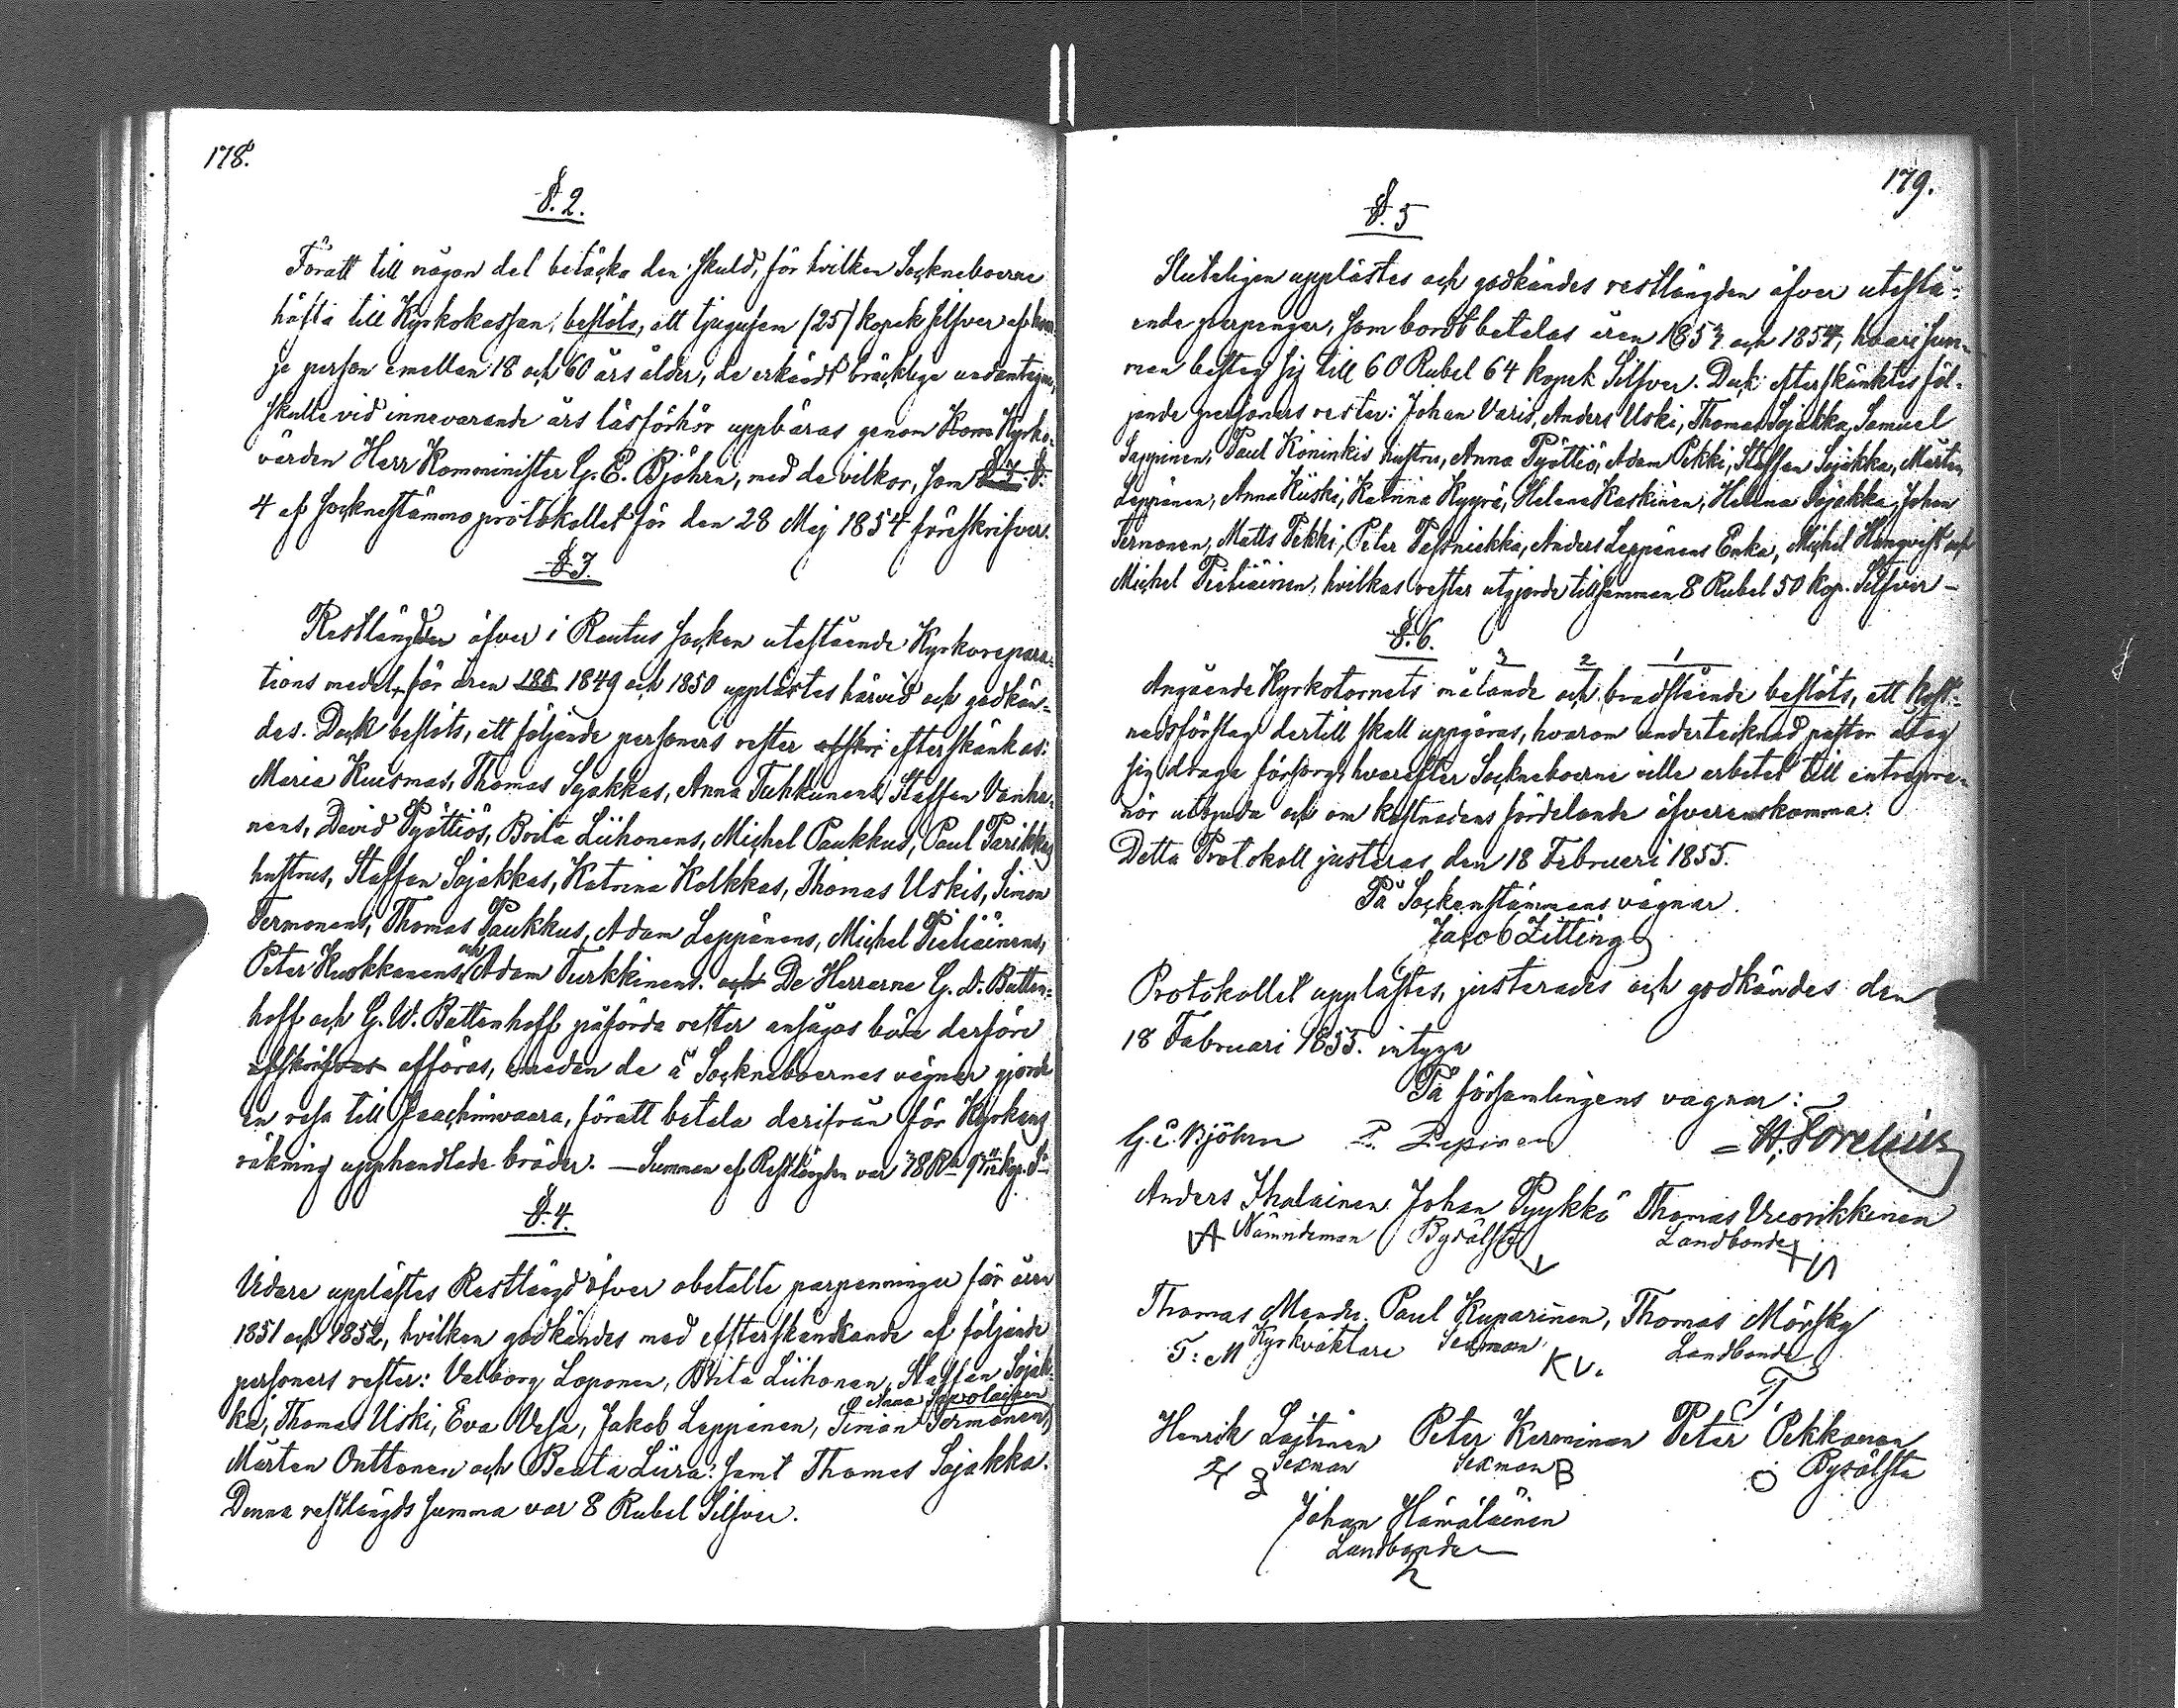 178.
§. 2.
Föratt till någon del betäcka den skuld, för hvilken Sockneboerne
häfta till Kyrkokassan, beslöts, att tjugufem (25) kopek silfver af hvar-
je person emellan 18 och 60 års ålder, de erkändt bräcklige undantagne,
skulle vid innevarande års läsförhör uppbäras genom Kom Kyrko-
värden Herr Komminister G. E. Björhn, med de vilkor, som § 3. §.
4 af socknestämmo protokollet för den 28 Maj 1854 föreskrifver.
§ 3.
Restlängden öfver i Rautus socken utestående Kyrkorepara-
tions medel, för åren 185 1849 och 1850 upplästes härvid och godkän-
des. Dock beslöts, att följande personers rester efterskänkas:
Maria Kuismas, Thomas Sojakkas, Anna Tuhkunens, Staffan Vanha-
nens, David Pyöttiös, Brita Liihonens, Michel Paukkus, Paul Parikkas
hustrus, Staffan Sojakkas, Katrina Kolkkas, Thomas Uskis, Simon
Termonens, Thomas Paukkus, Adam Leppänens, Michel Pieliäinens,
Peter Kuokkanens och Adam Turkkinens. och De Herrarne G. D. Batten-
hoff och G. W. Battenhoff påförda rester ansågos böra derföre
afskrifvas afföras, emedan de å Sockneboernes vägnar gjorde
en resa till Jaachimvaara, föratt betala derifrån för Kyrkans
räkning upphandlade bräder. — Summan af Restlängden var 38 Rb
§. 4.
Vidare upplästes Restlängd öfver obetalte parpenningar för åren
1851 och 1852, hvilken godkändes med efterskänkande af följande
personers rester: Valborg Loponen, Brita Liihonen, Staffan Sojak-
o Anna Savolainen
ka, Thomas Uski, Eva Vesa, Jakob Leppänen, Simon Termonen,
Mårten Onttonen och Beata Liira: samt Thomas Sojakka.
Denna restlängds summa var 8 Rubel Silfver.
179.
§. 5
Sluteligen upplästes och godkändes restlängden öfver utestå-
ende parpengar, som bordt betalas åren 1853 och 1854, hvari sum-
man besteg sig till 60 Rubel 64 kopek Silfver. Dock efterskänktes föl-
jande personers rester: Johan Varis, Anders Uski, Thomas Sojakka, Samuel
Seppinen, Paul Köninkis hustru, Anna Pyöttiö, Adam Pekki, Staffan Sojakka, Mårten
Leppänen, Anna Kiiski, Katrina Kyyrä, Helena Kaskinen, Helena Sojakka, Johan
Termonen, Matts Pekki, Peter Anders Leppänens Enka, Michel och
Michel Pieliäinen, hvilkas rester utgjorde tillsamman 8 Rubel 50 kop. Silfver –
§. 6.
3 2 1
Angående Kyrkotornets målande och brädslående beslöts, att kost-
nadsförslag dertill skall uppgöras, hvarom undertecknad pastor åtog
sig draga försorg, hvarefter Sockneboerne ville arbetet till entrepre-
nör utbjuda och om kostnadens fördelande öfverenskomma.
Detta Protokoll justeras den 18 Februari 1855.
På Sockenstämmans vägnar.
Jacob Zitting
Protokollet upplästes, justerades och godkändes den
18 Februari 1855. intyga
På församlingens vägnar:
G. E. Björhn P. Pepinen H. Forelius
Anders Ihalainen Johan Pyykkö Thomas Vuorikkinen
Nämndeman Byålste Landbonde
Thomas Mendu. Paul Kuparinen, Thomas Mörsky
T: M Kyrkväktare Sexman KV. Landbonde
T,
Henrik Laitinen Peter Kerminen Peter Pekkanen
Sexman Sexman B Byålste
Johan Hämäläinen
Landbonde